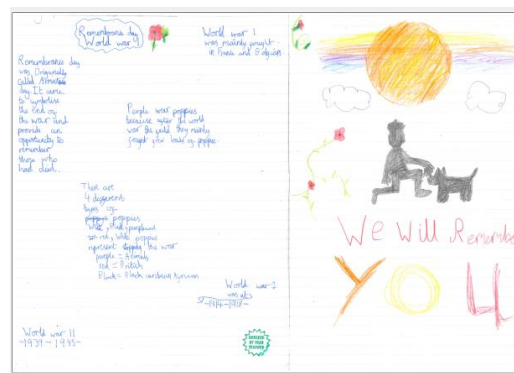 Remembrance day
World war 1
World war 1
was mainly fought
in France and Belgium
Remembrance day
was Originally
called
day. It came
to symbolise
the End of
the war and
provide an
opportunity to
remember
those who
had died.
People wear poppies
because after the world
war the field they mainly
fought for loads of poppie.
There are
4 different
types of
poppies
red, white poppie
represent the war
purple = Animals
red = British
Black = Black
World war 1
was at
-1914-1918-
World war II
-1939-
We Will Remember
YOU
CHECKED
BY YOUR
TEACHER